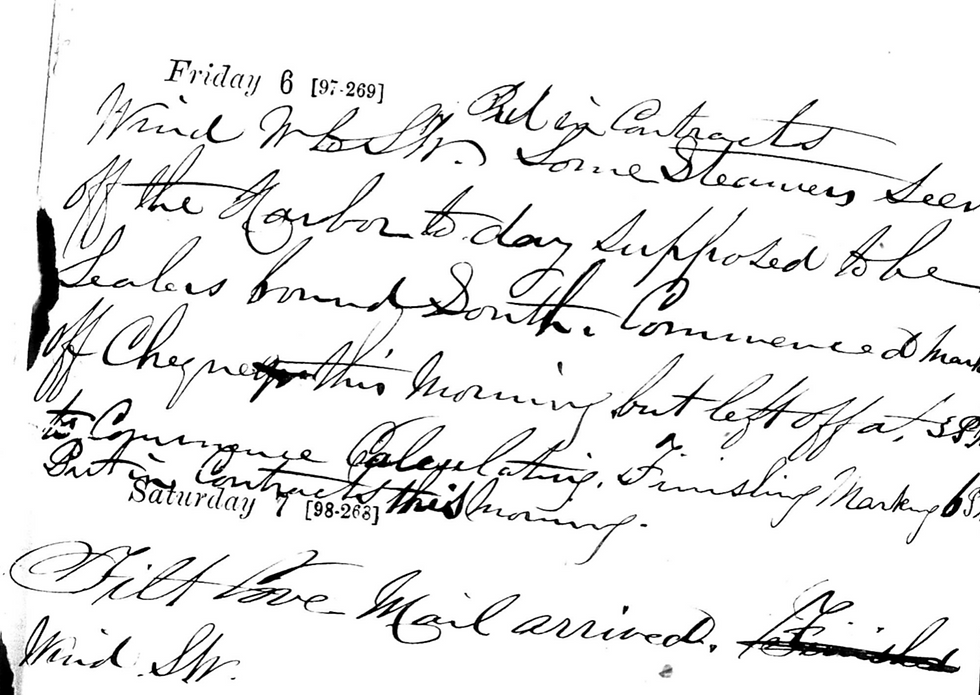 Friday 6 [97-269]
Put in Contracts
Wind W to SW. Some Steamers seen
off the Harbor to day supposed to be
Sealers bound South. Commenced mark
off Cheques this Morning but left off at
to Commence Calculating. Finishing Marking
Put in Contracts this morning.
Saturday 7 [98-268]
Tilt Cove Mail arrived. Finished
Wind SW.